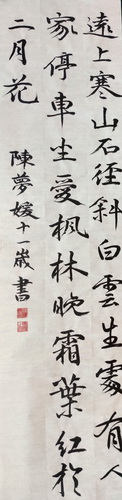 遠上寒山石徑斜白雲生處有人
家停車坐愛楓林晚霜葉紅於
二月花
陳夢媛十一歲書